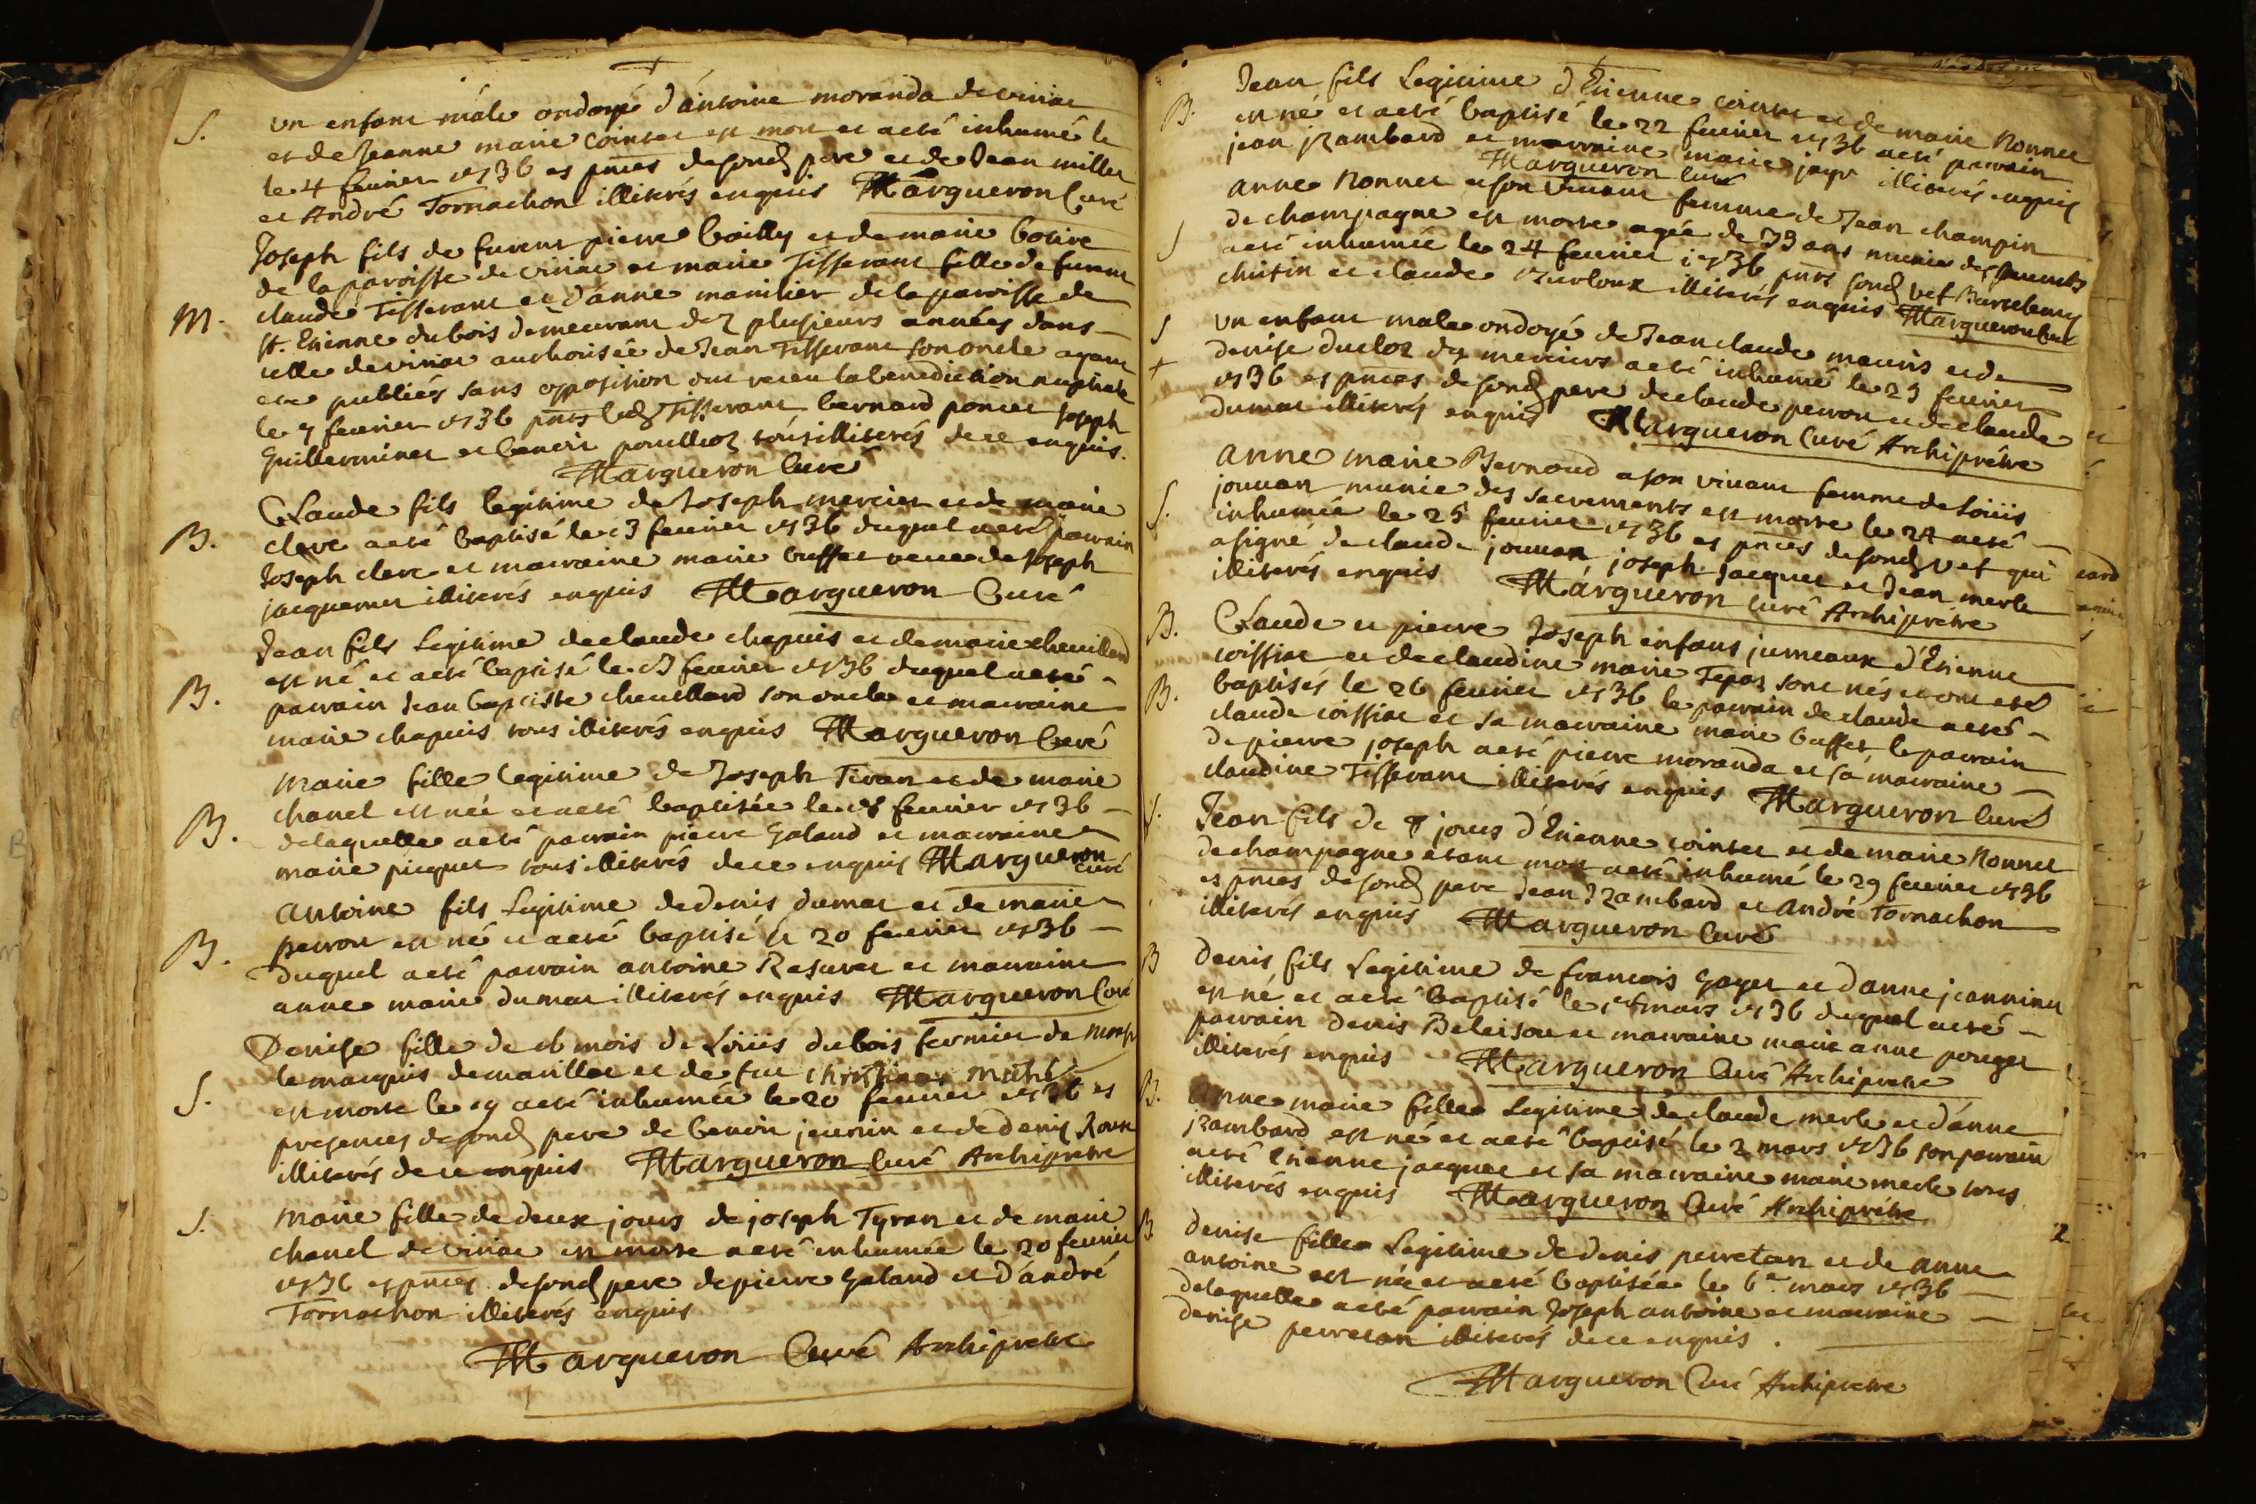 S. un enfant mâle ondoyé d'antoine moranda de viriac
et de Jeanne marie cointet est mort et a eté inhumé le
le 4 feurier 1736 es pnces desond pere et de Jean millet
et André Tornachon illiterés enquis Margueron Curé
Joseph fils de fureur pierre bailly et de marie
de la paroisse de viriac et marie Tisserant fille de fureur
M. claude Tisserant et d'anne manilier de la paroisse de
st. Etienne dubois demeurant dez plusieurs années dans
celle de viriac authorisée de Jean Tisserant son oncle ayant
eté publiés sans opposition ont receu la benediction nuptiale
le 7 feurier 1736 pnts led Tisserant bernard poncet Joseph
Guillerminet et benoit pouilloz tous illiterés de ce enquis.
Margueron Curé
Claude fils legitime de Joseph mercier et de marie
B. clerc a eté baptisé le 13 feurier 1736 duquel a eté parrain
Joseph clerc et marraine marie buffet veue de Joseph
jacquemet illiterés enquis Margueron Curé
Jean fils Legitime de claude chapuis et de marie cheuillard
est né et a eté baptisé le 13 feurier 1736 duquel a eté
B. parrain Jean baptiste cheuillard son oncle et marraine
marie chapuis tous illiterés enquis Margueron Curé
Marie fille legitime de Joseph Tiran et de marie
chanel est née et a eté baptisée le 18 feurier 1736
B. de laquelle a eté parrain pierre Galand et marraine
marie picquet tous illiterés de ce enquis Margueron
curé
Antoine fils Legitime de denis dumas et de marie
perron est né et a eté baptisé le 20 feurier 1736
B. duquel a eté parrain antoine et marraine
anne marie dumas illiterés enquis Margueron Curé
Denise fille de 16 mois de Loüis dubois fermier de Monsr
le marquis de marillac et de feu michel
S. est morte le 19 a eté inhumée le 20 feurier 1736 es
presences desond pere de benoit jeunin et de denis Roux
illiterés de ce enquis Margueron Curé Archiprêtre
S. Marie fille de deux jours de joseph Tyran et de marie
chanel de viriac est morte a eté inhumée le 20 feurier
1736 es pnces desond pere de pierre Galand et d'andré
Tornachon illiterés enquis
Margueron Curé Archipretre
Jean fils Legitime d'Etienne cointet et de marie Nonnet
B. est né et a eté baptisé le 22 feurier 1736 a eté parrain
jean Rambard et marraine marie illiterés enquis
Margueron Curé
Anne Nonnet a son viuant femme de Jean champin
de champagne est morte agée de 73 ans munie des sacremts
S a eté inhumée le 24 feurier 1736 pnts sond vef Barthelemy
christin et claude illiterés enquis Margueron Curé
S un enfant male ondoyé de Jean claude mauris et de
+ denise duclos des merciers a eté inhumé le 25 feurier
1736 es pnces desond pere de claude perron et de claude
dumas illiterés enquis Margueron Curé Archiprêtre
Anne marie Bernoud a son viuant femme de Loüis
jouuan munie des sacrements est morte le 24 a eté
S. inhumée le 25 feurier 1736 es pnces desond vef qui
a signé de claude jouuan joseph Jacquet et Jean merle
illiterés enquis Margueron Curé Archiprêtre
B. Claude et pierre Joseph enfans jumeaux d'Etienne
coissiac et de claudine marie sont nés et ont eté
B. baptisés le 26 feurier 1736 le parrain de claude a eté
claude coissiac et sa marraine marie buffet le parrain
de pierre joseph a eté pierre moranda et sa marraine
claudine Tisserant illiterés enquis Margueron Curé
S. Jean fils de 8 jours d'Etienne cointet et de marie Nonnet
de champagne etant mort a eté inhumé le 29 feurier 1736
es pnces desond pere Jean Rambard et André Tornachon
illiterés enquis Margueron Curé
B Denis fils Legitime de francois Goyet et d'anne jeanninet
est né et a eté baptisé le 1er mars 1736 duquel a eté
parrain denis et marraine marie anne ponget
illiterés enquis Margueron Curé Archipretre
B. Anne marie fille Legitime de claude merle et d'anne
Rambard est né et a eté baptisé le 2 mars 1736 son parrain
a eté Etienne jacquet et sa marraine marie merle tous
illiterés enquis Margueron Curé Archiprêtre
B Denise fille Legitime de denis perretan et de anne
antoine est née et a eté baptisée le 6e mars 1736
de laquelle a eté parrain Joseph antoine et marraine
denise perretan illiterés de ce enquis.
Margueron Curé Archipretre